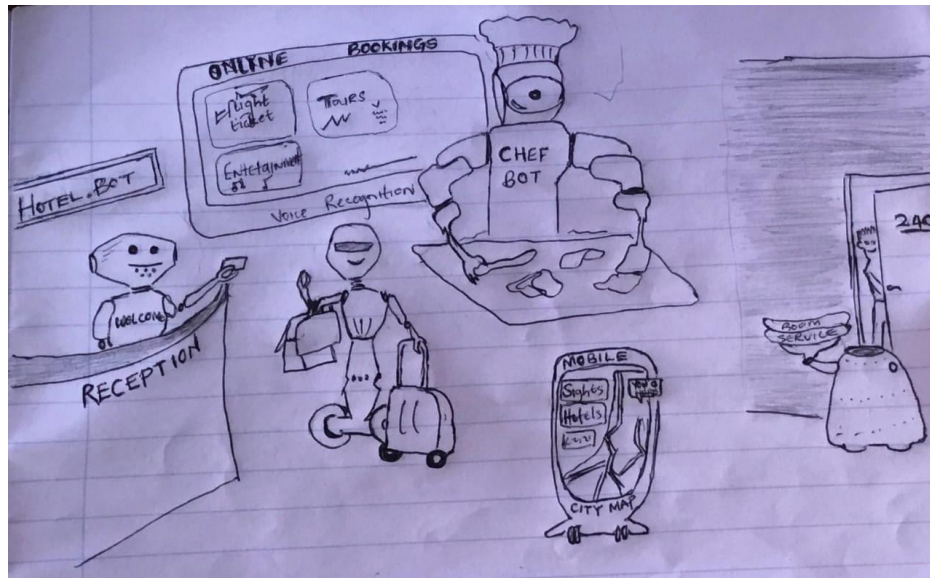 ONLINE BOOKINGS
Flight
ticket
TOURS
Voice Recognition
HOTEL.BOT
WELCOME
RECEPTION
CHEF
BOT
ROOM
SERVICE
MOBILE
Sights
Hotels
CITY MAP